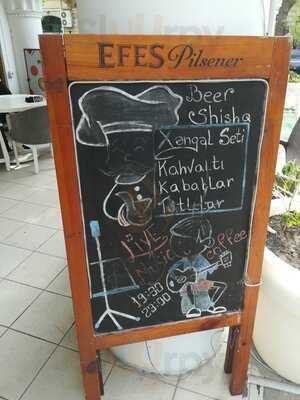 EFES Pilsener
Beer
Shisha
Xəngəl Seti
Kahvaltı
Kabablar
Tatlılar
LIVE
Music
Coffee
19:30
23:00